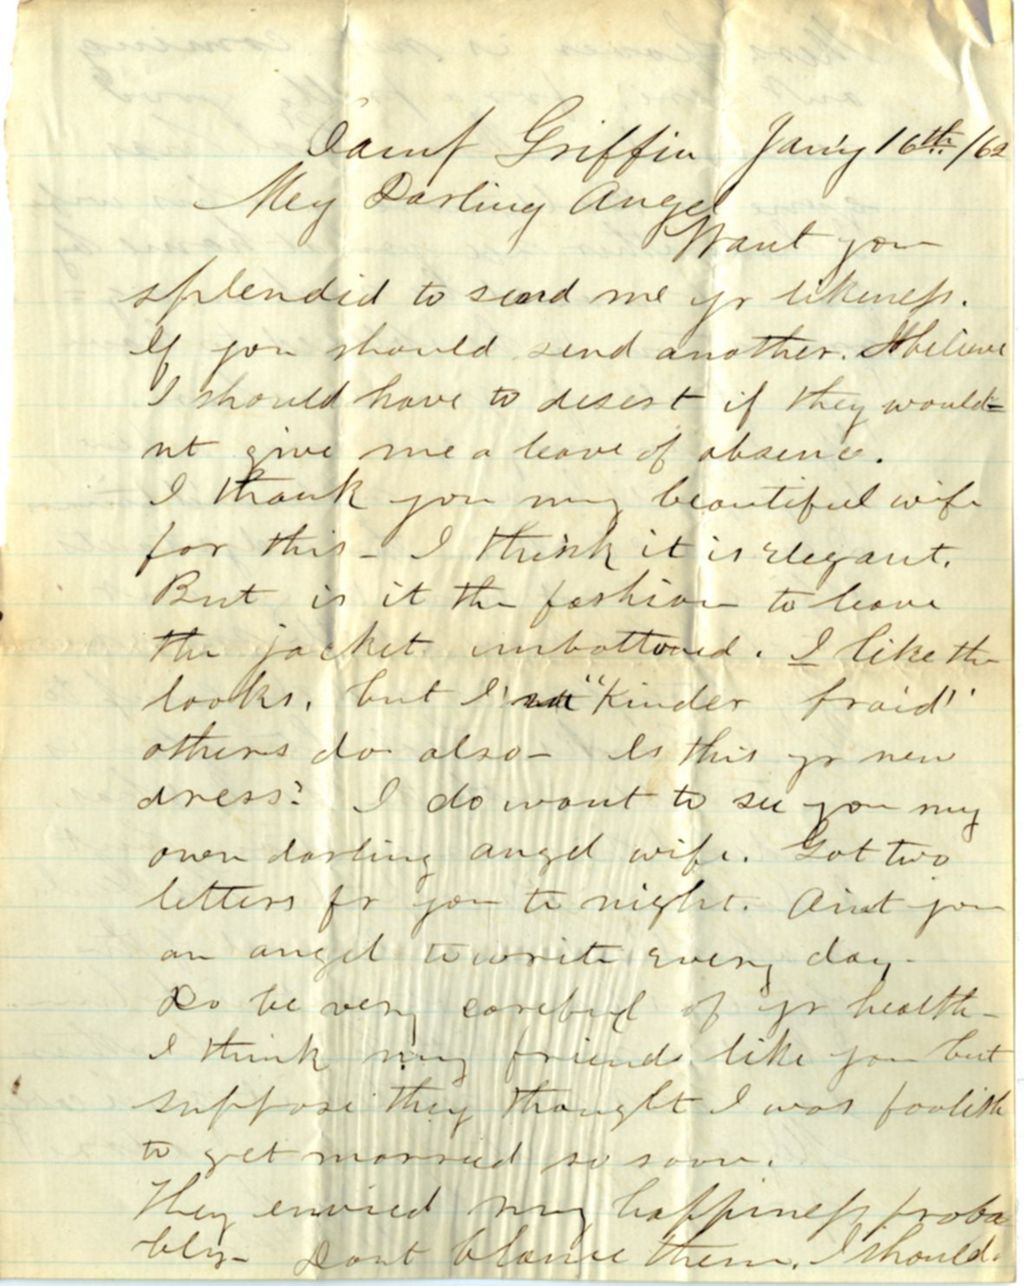 Camp Griffin Jan'y 16th /62
My Darling Angel
Want you
splendid to send me yr likeness.
If you should send another. I believe
I should have to desert if they would=
nt give me a leave of absence.
I thank you my beautiful wife
for this - I think it is elegant.
But is it the fashion to leave
the jacket unbottoned. I like the
looks, but I'm "Kinder fraid'
others do also - Is this yr new
dress? I do want to see you my
own darling angel wife. Got two
letters fr you to night. Aint you
an angel to write every day.
Do be very careful of yr health -
I think my friends like you but
suppose they thought I was foolish
to get married so soon.
They envied my happiness proba
bly - Dont blame them. I should.